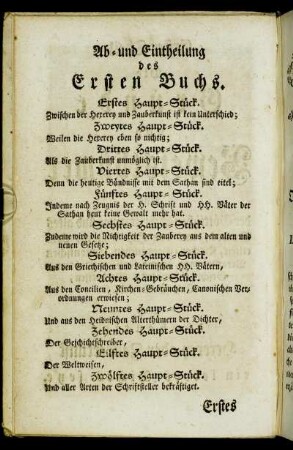 Ab- und Eintheilung
des
Ersten Buchs.
Erstes Haupt-Stück.
Zwischen der Hexerey und Zauberkunst ist kein Unterschied;
Zweytes Haupt-Stück.
Weilen die Hexerey eben so nichtig;
Drittes Haupt-Stück.
Als die Zauberkunst unmöglich ist.
Viertes Haupt-Stück.
Denn die heutige Bündnisse mit dem Sathan sind eitel;
Fünftes Haupt-Stück.
Indeme nach Zeugniß der H. Schrift und HH. Väter der
Sathan heut keine Gewalt mehr hat.
Sechstes Haupt-Stück.
Indeme wird die Nichtigkeit der Zauberey aus dem alten und
neuen Gesetze;
Siebendes Haupt-Stück.
Aus den Griechischen und Lateinischen HH. Vätern,
Achtes Haupt-Stück.
Aus den Concilien, Kirchen-Gebräuchen, Canonischen Ver-
ordnungen erwiesen;
Neuntes Haupt-Stück.
Und aus den Heidnischen Alterthümern der Dichter,
Zehendes Haupt-Stück.
Der Geschichtschreiber,
Eilftes Haupt-Stück.
Der Weltweisen,
Zwölftes Haupt-Stück.
Und aller Arten der Schriftsteller bekräftiget.
Erstes